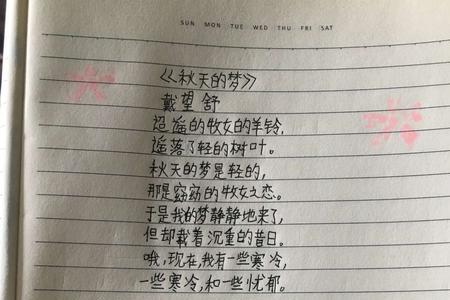 SUN MON TUE WED THU FRI SAT
《秋天的梦》
戴望舒
迢遥的牧女的羊铃,
遥落了轻的树叶。
秋天的梦是轻的,
那是窈窈的牧女之恋。
于是我的梦静静地来了,
但却载着沉重的昔日。
哦,现在,我有一些寒冷,
一些寒冷,和一些忧郁.